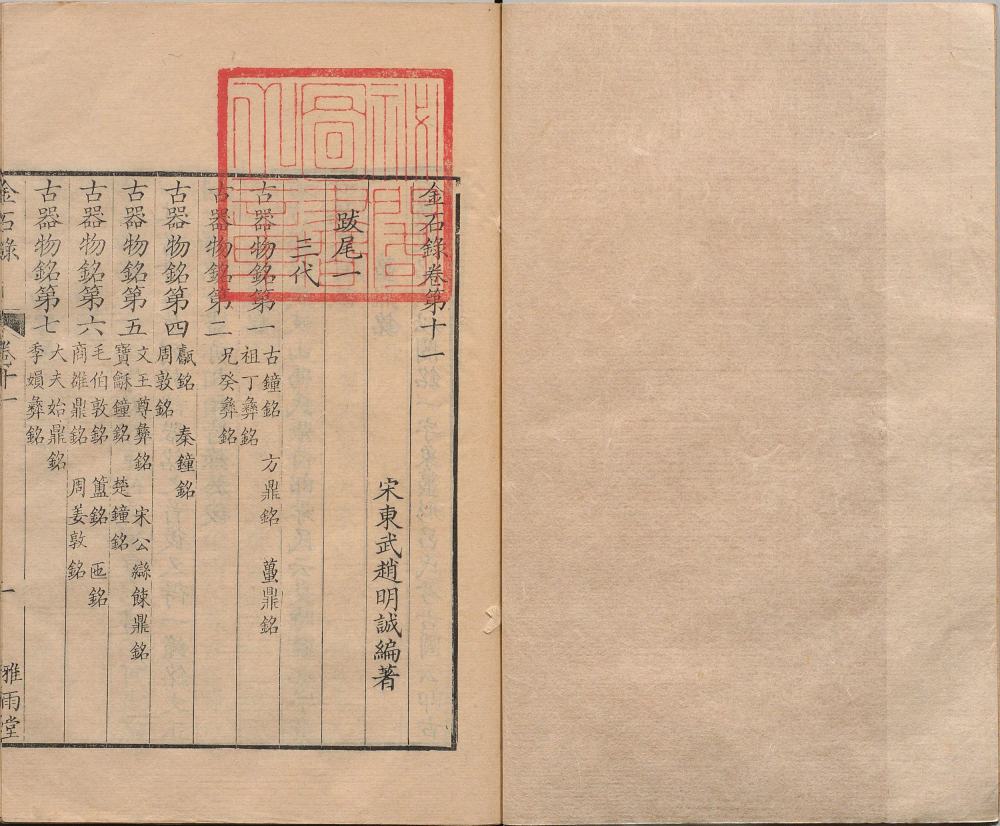 金石錄卷第十一
宋東武趙明誠編著
跋尾一
三代
古器物銘第一
古鐘銘 方鼎銘 蠆鼎銘
祖丁彝銘
古器物銘第二
兄癸彝銘
古器物銘第四
甗銘 秦鐘銘
周敦銘
古器物銘第五
文王尊彝銘 宋公䜌餗鼎銘
寶龢鐘銘 楚鐘銘
古器物銘第六
毛伯敦銘 簠銘 匜銘
商雒鼎銘 周姜敦銘
古器物銘第七
大夫始鼎銘
季娟彝銘
金石錄
卷十一
一
雅雨堂